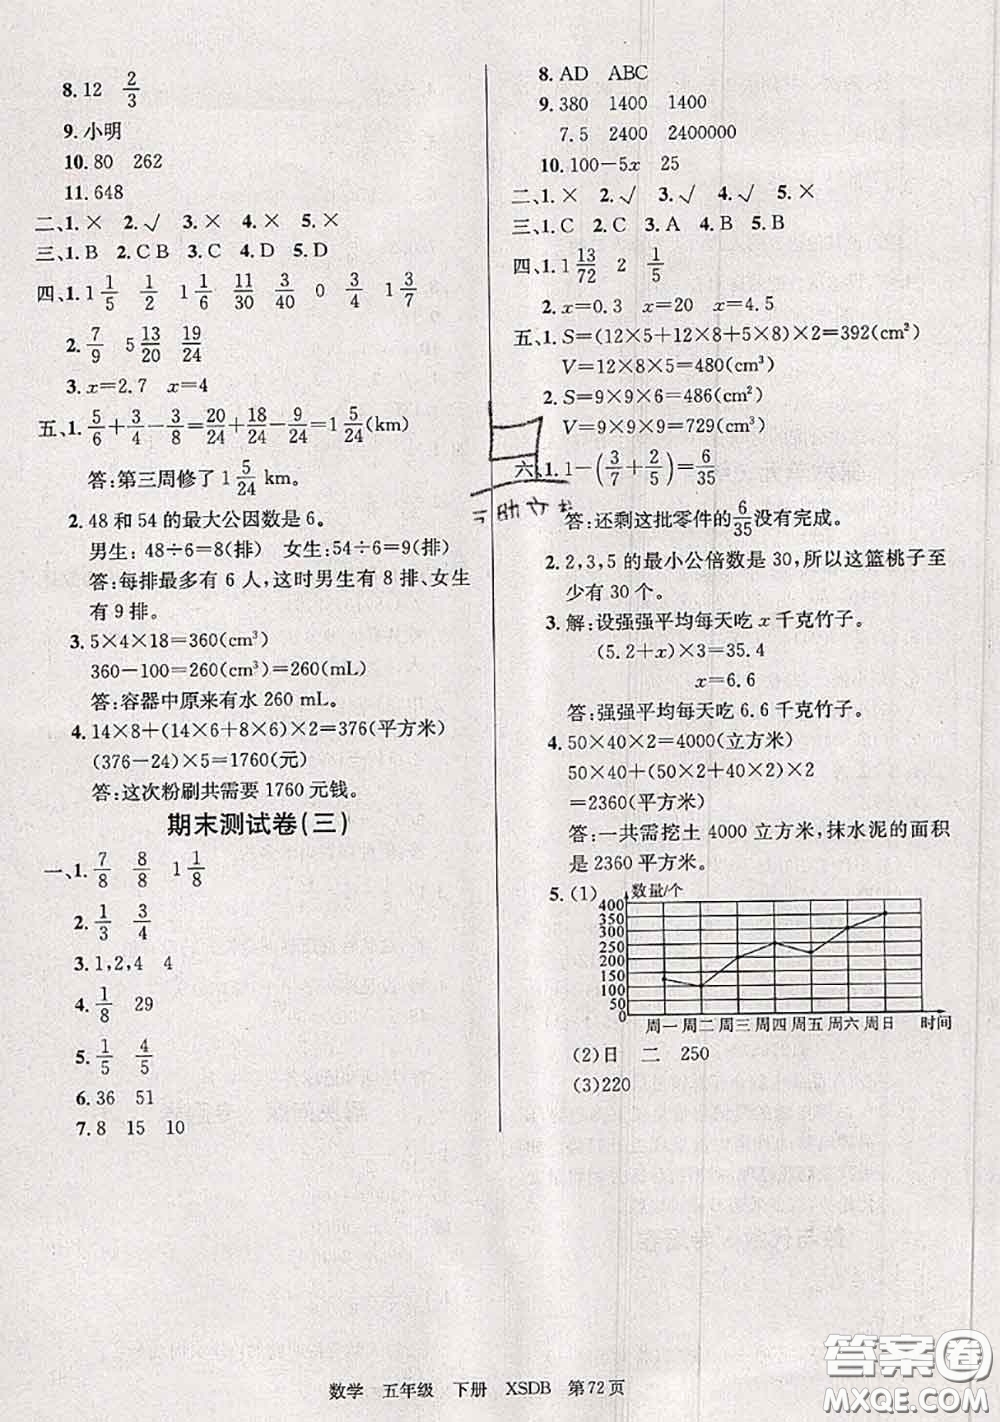 8. 12 2/3
9. 小明
10. 80 262
11. 648
二、1. × 2. √ 3. × 4. × 5. ×
三、1. B 2. C B 3. C 4. D 5. D
四、1. 1 1/5 1/2 1 1/6 11/30 3/40 0 3/4 1 3/7
2. 7/9 5 13/20 19/24
3. x=2.7 x=4
五、1. 5/6+3/4−3/8=20/24+18/24−9/24=1 5/24(km)
答:第三周修了 1 5/24 km。
2. 48 和 54 的最大公因数是 6。
男生: 48÷6=8(排) 女生:54÷6=9(排)
答:每排最多有 6 人,这时男生有 8 排、女生
有 9 排。
3. 5×4×18=360(cm³)
360−100=260(cm³)=260(mL)
答:容器中原来有水 260 mL。
4. 14×8+(14×6+8×6)×2=376(平方米)
(376−24)×5=1760(元)
答:这次粉刷共需要 1760 元钱。
期末测试卷(三)
一、1. 7/8 8/8 1 1/8
2. 1/3 3/4
3. 1,2,4 4
4. 1/8 29
5. 1/5 4/5
6. 36 51
7. 8 15 10
8. AD ABC
9. 380 1400 1400
7.5 2400 2400000
10. 100−5x 25
二、1. × 2. √ 3. √ 4. √ 5. ×
三、1. C 2. C 3. A 4. B 5. B
四、1. 1 13/72 2 1/5
2. x=0.3 x=20 x=4.5
五、1. S=(12×5+12×8+5×8)×2=392(cm²)
V=12×8×5=480(cm³)
2. S=9×9×6=486(cm²)
V=9×9×9=729(cm³)
六、1. 1−(3/7+2/5)=6/35
答:还剩这批零件的 6/35 没有完成。
2. 2,3,5 的最小公倍数是 30,所以这篮桃子至
少有 30 个。
3. 解:设强强平均每天吃 x 千克竹子。
(5.2+x)×3=35.4
x=6.6
答:强强平均每天吃 6.6 千克竹子。
4. 50×40×2=4000(立方米)
50×40+(50×2+40×2)×2
=2360(平方米)
答:一共需挖土 4000 立方米, 抹水泥的面积
是 2360 平方米。
5. (1) 数量/个
400
350
300
250
200
150
100
50
0
周一 周二 周三 周四 周五 周六 周日 时间
(2)日 二 250
(3)220
数学 五年级 下册 XSDB 第72页
答案圈
MXQE.COM